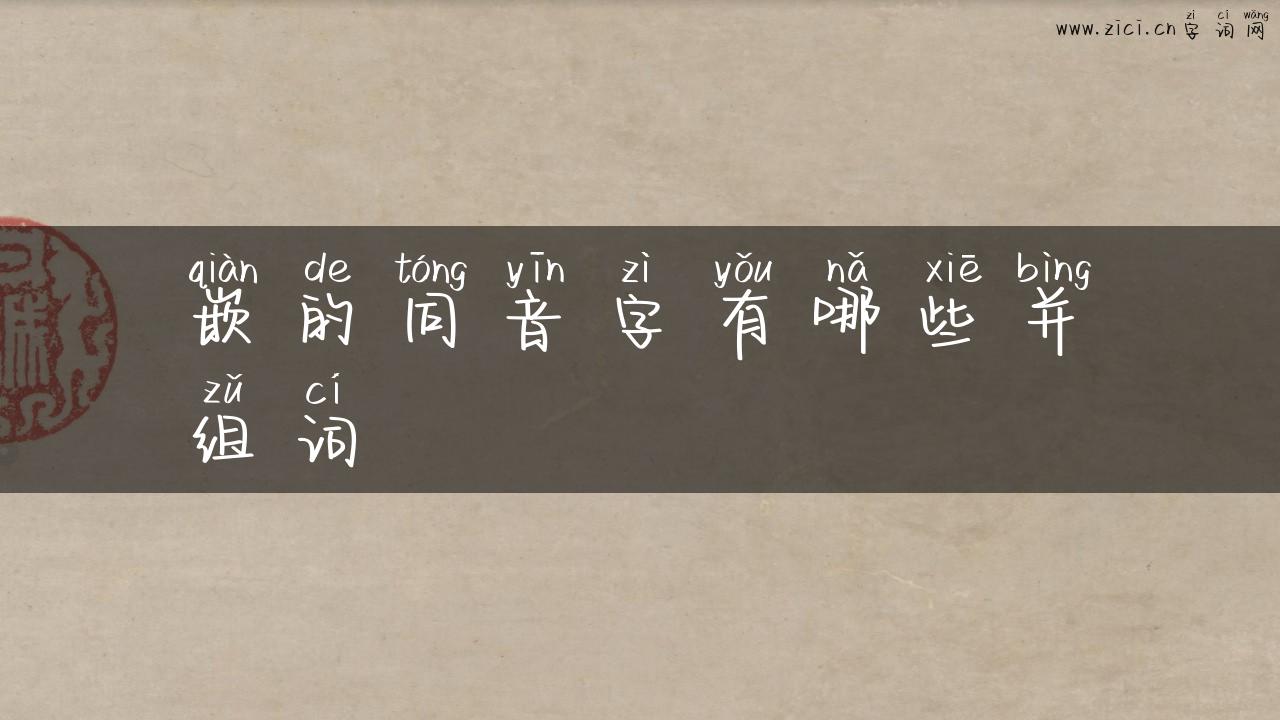 zì cí wǎng
www.zici.cn字词网
qiàn de tóng yīn zì yǒu nǎ xiē bìng
嵌的同音字有哪些并
zǔ cí
组词